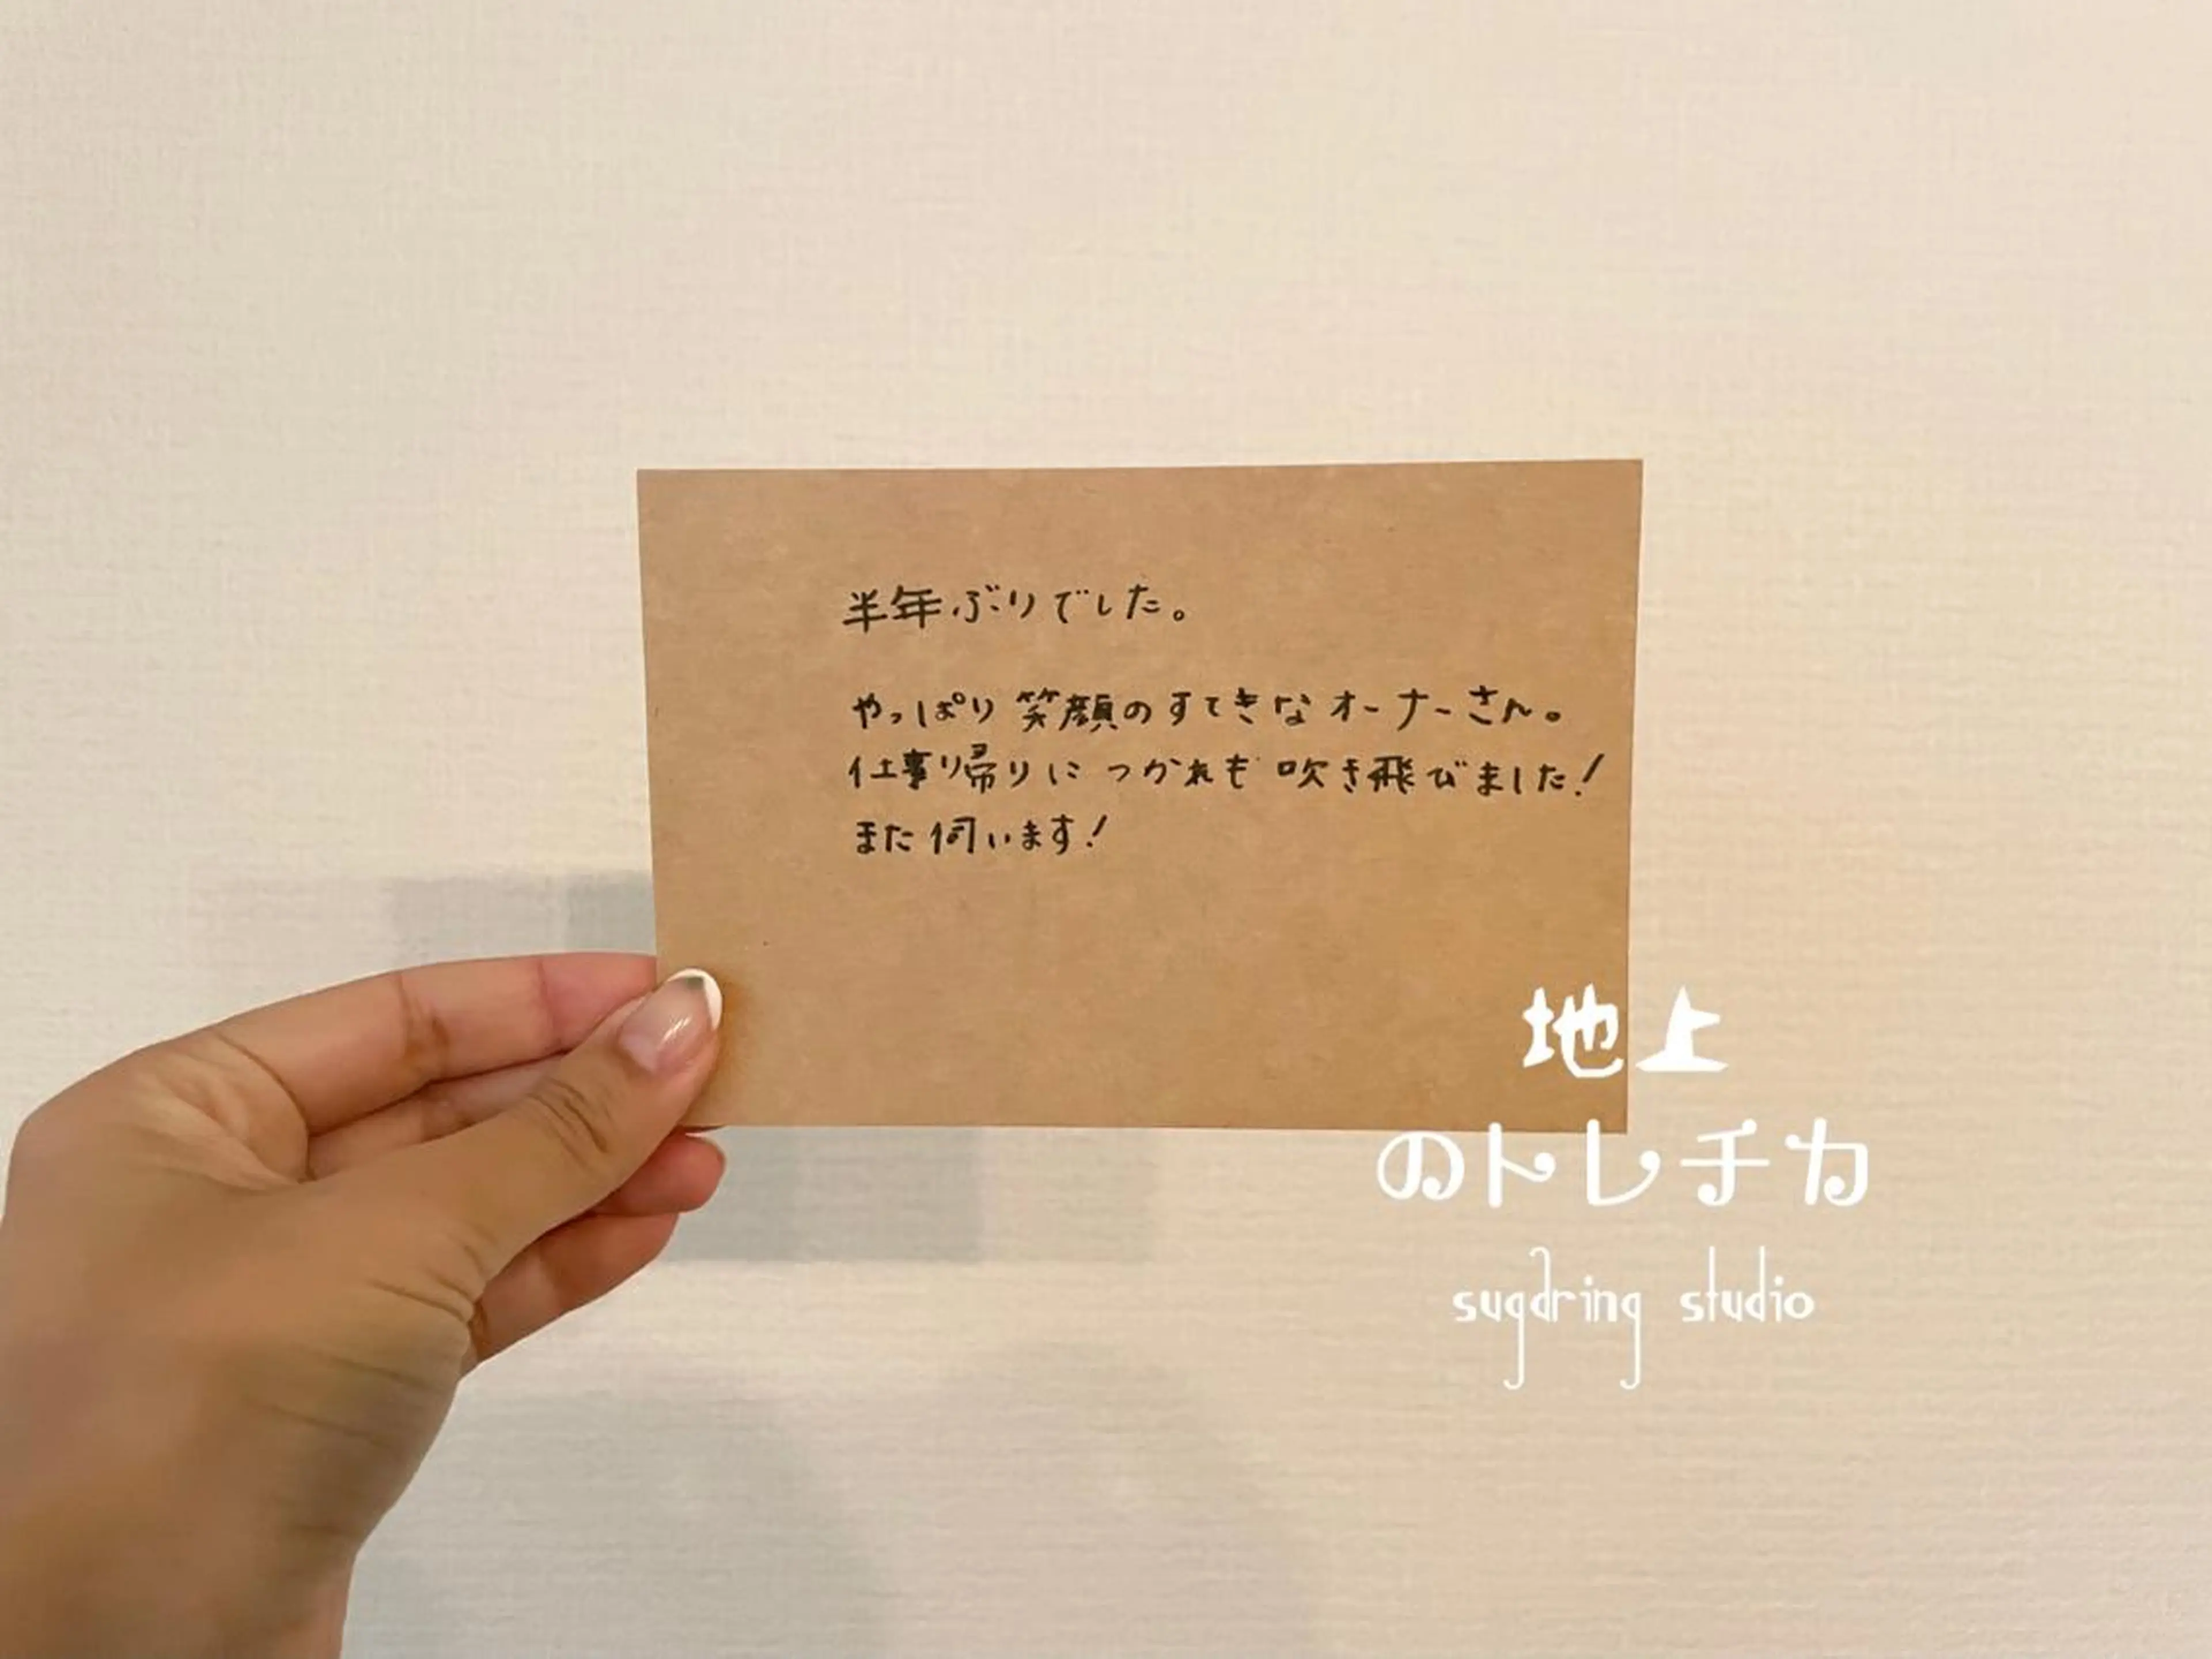 半年ぶりでした。
やっぱり笑顔のすてきなオーナーさん。
仕事り帰りにつかれも吹き飛びました!
また伺います!
地上
のトレチカ
sugdring studio